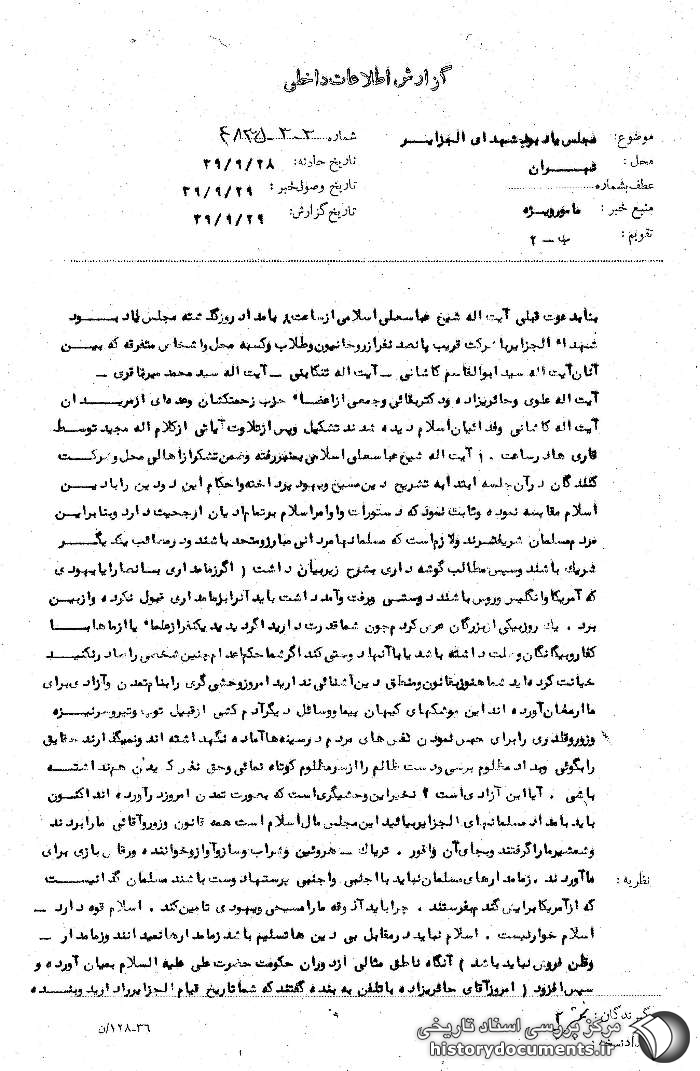 گزارش اطلاعات داخلی
موضوع: مجلس یاد بود شهدای الجزایر
شماره
محل: تهران
تاریخ حادثه: ۳۹/۹/۲۸
عطف بشماره
تاریخ وصول خبر: ۳۹/۹/۲۹
منبع خبر: مامور ویژه
تاریخ گزارش: ۳۹/۹/۲۹
تقویم: ب - ۲
بنا بدعوت قبلی آیت اله شیخ عباسعلی اسلامی از ساعت ۸ بامداد روز گذشته مجلس یاد بود
شهداء الجزایر با شرکت قریب پانصد نفر از روحانیون و طلاب و کسبه محل و اشخاص متفرقه که بین
آنان آیت اله سید ابوالقاسم کاشانی - آیت اله تنکابنی - آیت اله سید محمد میرباقری -
آیت اله علوی و حائریزاده و دکتر بقائی و جمعی از اعضاء حزب زحمتکشان و عده ای از مریدان
آیت اله کاشانی و فدائیان اسلام دیده شدند تشکیل و پس از تلاوت آیاتی از کلام اله مجید توسط
قاری ها در ساعت آیت اله شیخ عباسعلی اسلامی بمنبر رفته و ضمن تشکر از اهالی محل و شرکت
کنندگان در آن جلسه ابتدا به تشریح دین مسیح و یهود پرداخته و احکام این دو دین را با دین
اسلام مقایسه نموده و ثابت نمود که دستورات و اوامر اسلام بر تمام ادیان ارجحیت دارد و بنابراین
مردم مسلمان شریفترند و لازم است که مسلمانها مردانی مبارز و متحد باشند و در مصائب یکدیگر
شریک باشند و سپس مطالب گوشه داری بشرح زیر بیان داشت ( اگر زمامداری با نصارا یا یهودی
که آمریکا و انگلیس و روس باشند دوستی و رفت و آمد داشت باید آنرا بزمامداری قبول نکرده و از بین
برد . یک روز بیکی از بزرگان عرض کردم چون شما قدرت دارید اگر دیدید یکنفر از علماء یا از ماها با
کفار و بیگانگان وصلت داشته باشد یا با آنها دوستی کند اگر شما حکم اعدام چنین شخصی را صادر نکنید
خیانت کرده اید شما هنوز بقانون و منطق دین آشنائی ندارید امروز وحشی گری را بنام تمدن و آزادی برای
ما ارمغان آورده اند این موشکهای کیهان پیما و وسائل دیگر آدم کشی از قبیل توپ و تیر و سرنیزه
و زور و قلدری را برای حبس نمودن نفس های مردم در سینه ها آماده نگهداشته اند و نمیگذارند حقایق
را بگوئی و بداد مظلوم برسی و دست ظالم را از سر مظلوم کوتاه نمائی و حق نفس کشیدن هم نداشته
باشی . آیا این آزادی است ؟ نخیر این وحشیگری است که بصورت تمدن امروز درآورده اند اکنون
باید بامداد مسلمانهای الجزایر بیائید این مجلس مال اسلام است همه قانون و زور و آقائی ما را بردند
و شمشیر ما را گرفتند و بجای آن وافور . تریاک - هروئین و شراب و ساز و آواز و خواننده و رقاص بازی برای
نظریه:
ما آوردند . زمامدارهای مسلمان نباید با اجنبی و اجنبی پرستها دوست باشند مسلمان گدا نیست
که از آمریکا برایش گندم بفرستند . چرا باید آذوقه ما را مسیحی و یهودی تامین کند . اسلام قوه دارد -
اسلام خوار نیست . اسلام نباید در مقابل بی دین ها تسلیم باشد زمامدارها نمیدانند و زمامدار -
وطن فروش نباید باشد ) آنگاه ناطق مثالی از دوران حکومت حضرت علی علیه السلام بمیان آورده و
سپس افزود ( امروز آقای حائریزاده با تلفن به بنده گفتند که شما تاریخ قیام الجزایر را دارید و بنده
گیرندگان:
۱۲۸-۳۶/ن
مرکز بررسی اسناد تاریخی
historydocuments.ir